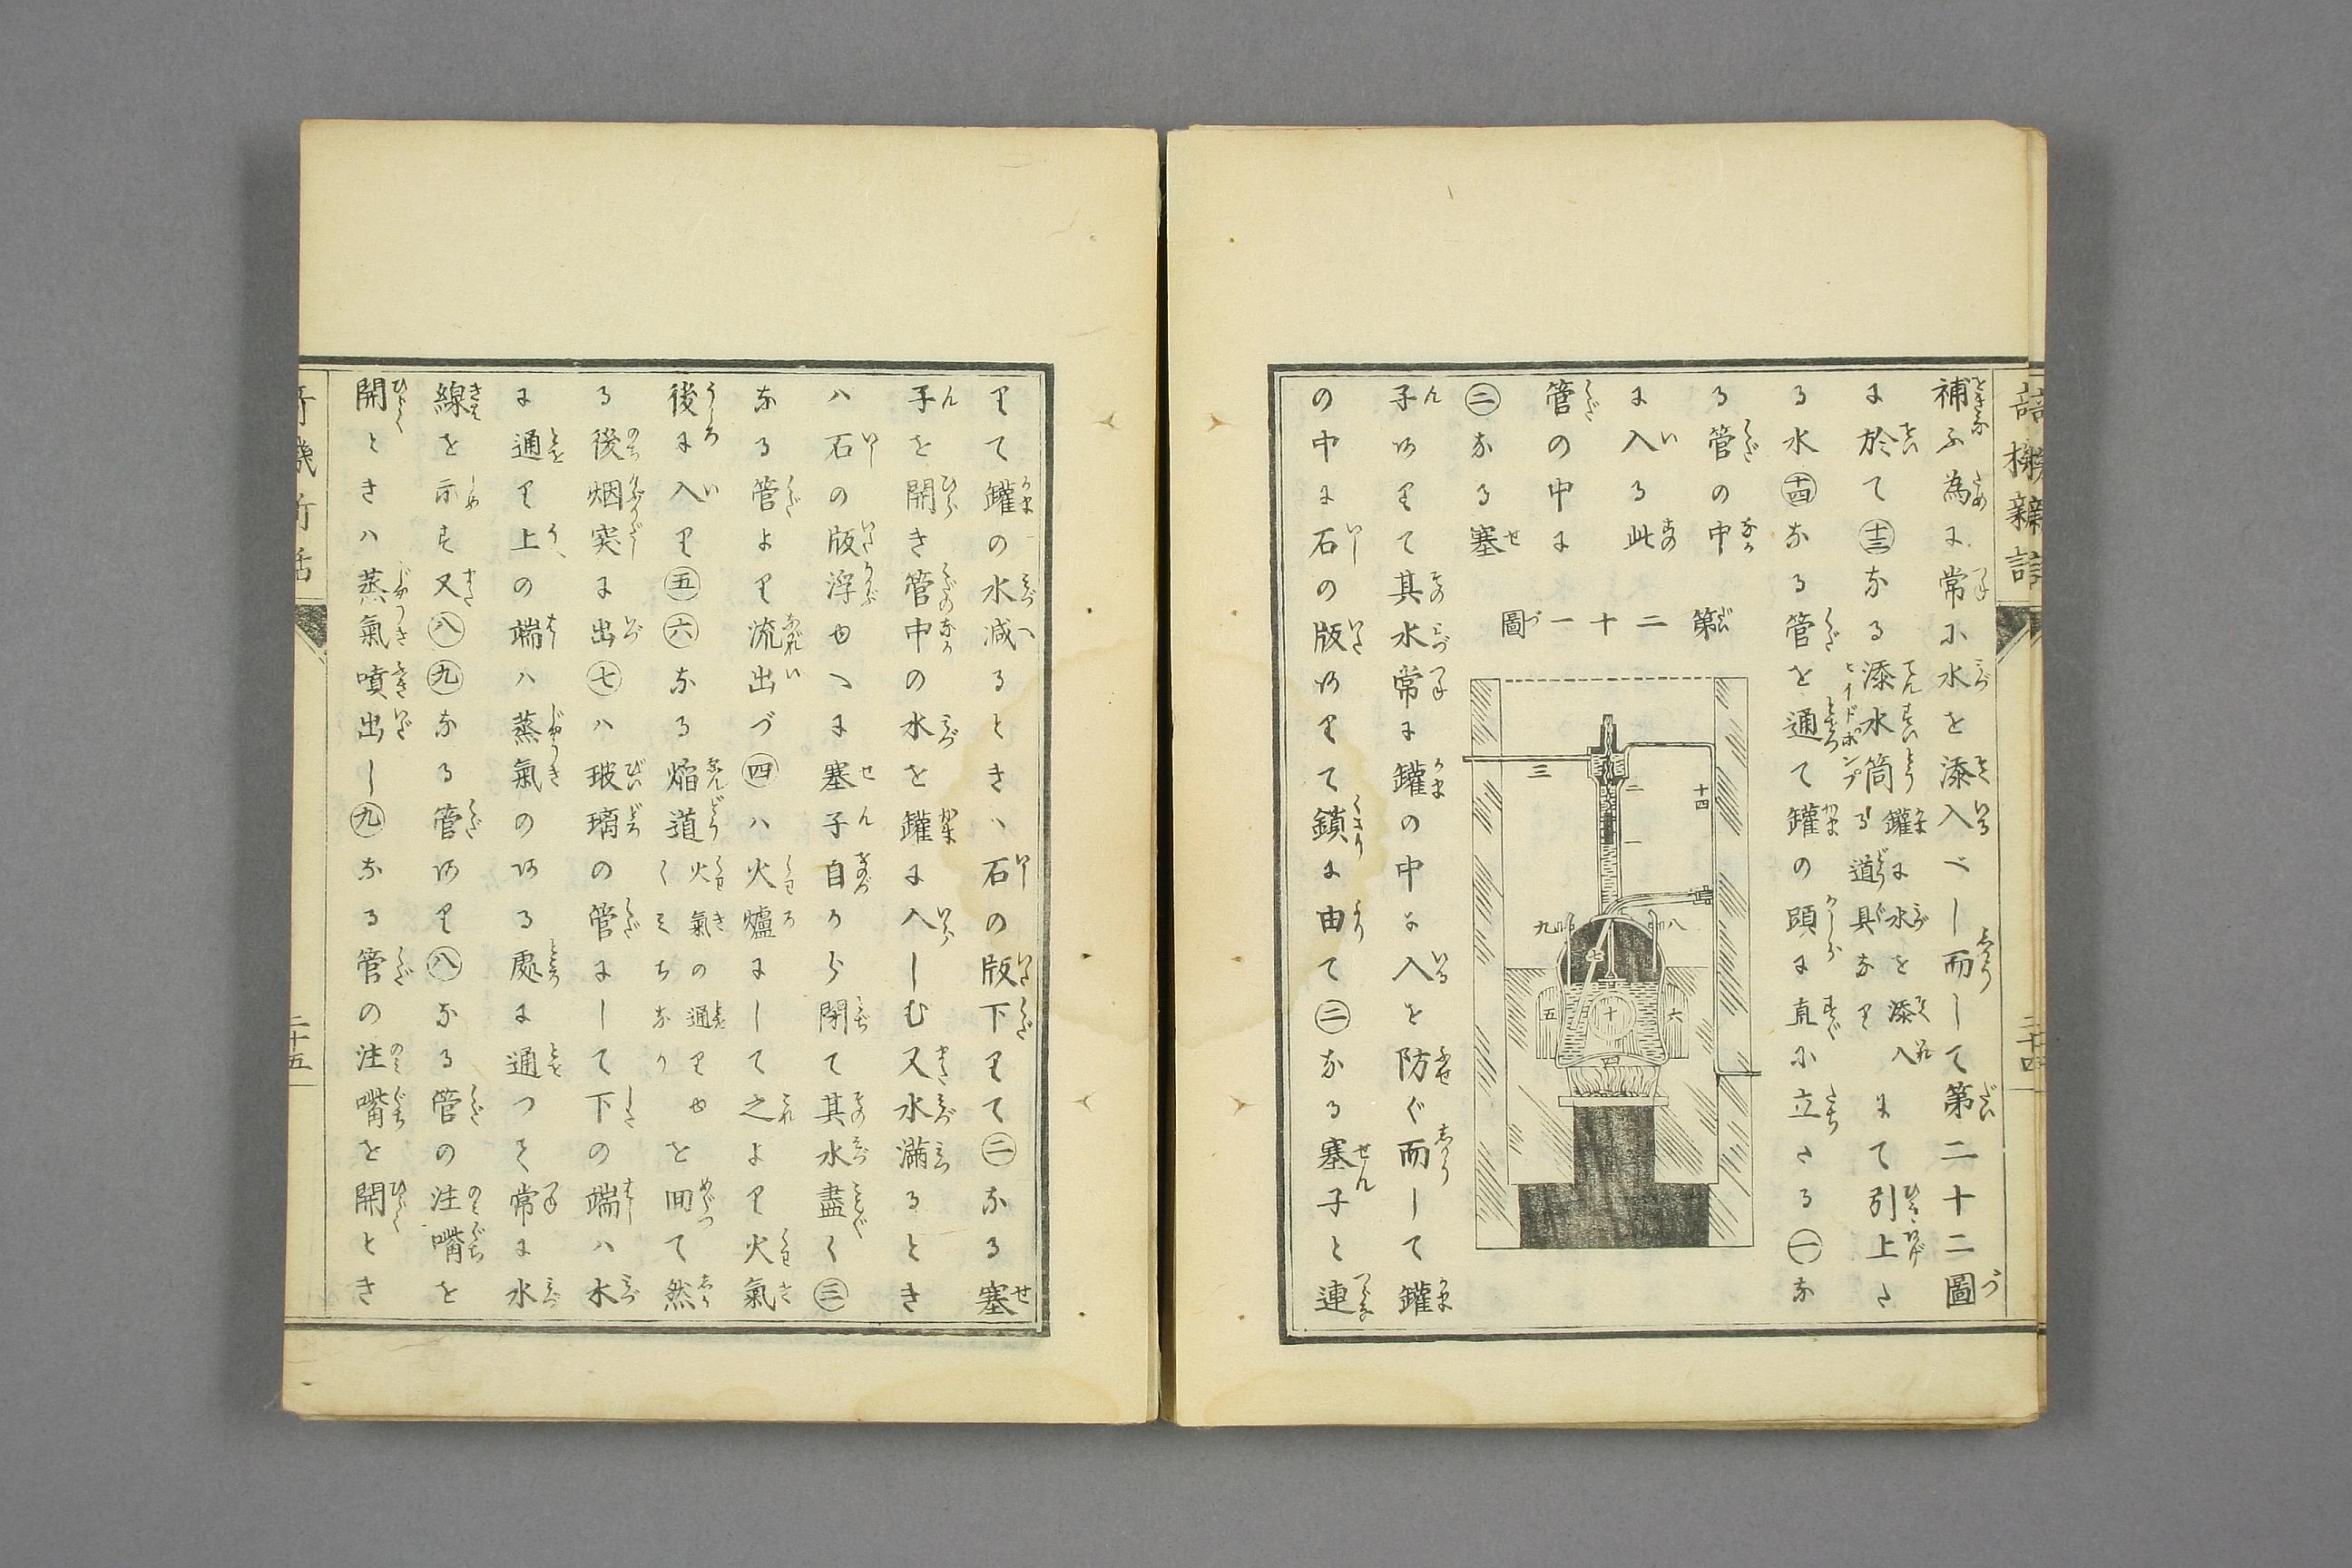 補ふ為に常に水を添入べし而して第二十二圖
に於て㊉三なる添水筒罐に水を添入るゝ道具なりにて引上さ
る水十四なる管を通て罐の頭に直に立さる㊀な
る管の中
に入る此
管の中に
㊁なる塞
第二十一圖
三
二
一
十四
九
八
七
五
十
六
四
子ありて其水常に罐の中に入を防ぐ而して罐
の中に石の版ありて鎖に由て㊁なる塞子と連
二十四
りて罐の水減るときハ石の版下りて㊁なる塞
子を開き管中の水を罐に入しむ又水満るとき
ハ石の版浮ゆへに塞子自から閉て其水盡く㊂
なる管より流出づ㊃ハ火爐にして之より火氣
後に入り㊄㊅なる焔道火氣の通りゆくみちなりを回て然
る後烟突に出㊆ハ玻璃の管にして下の端ハ水
に通り上の端ハ蒸氣のある處に通つて常に水
線を示す又㊇㊈なる管あり㊇なる管の注嘴を
開ときハ蒸氣噴出し㊈なる管の注嘴を開とき
二十五